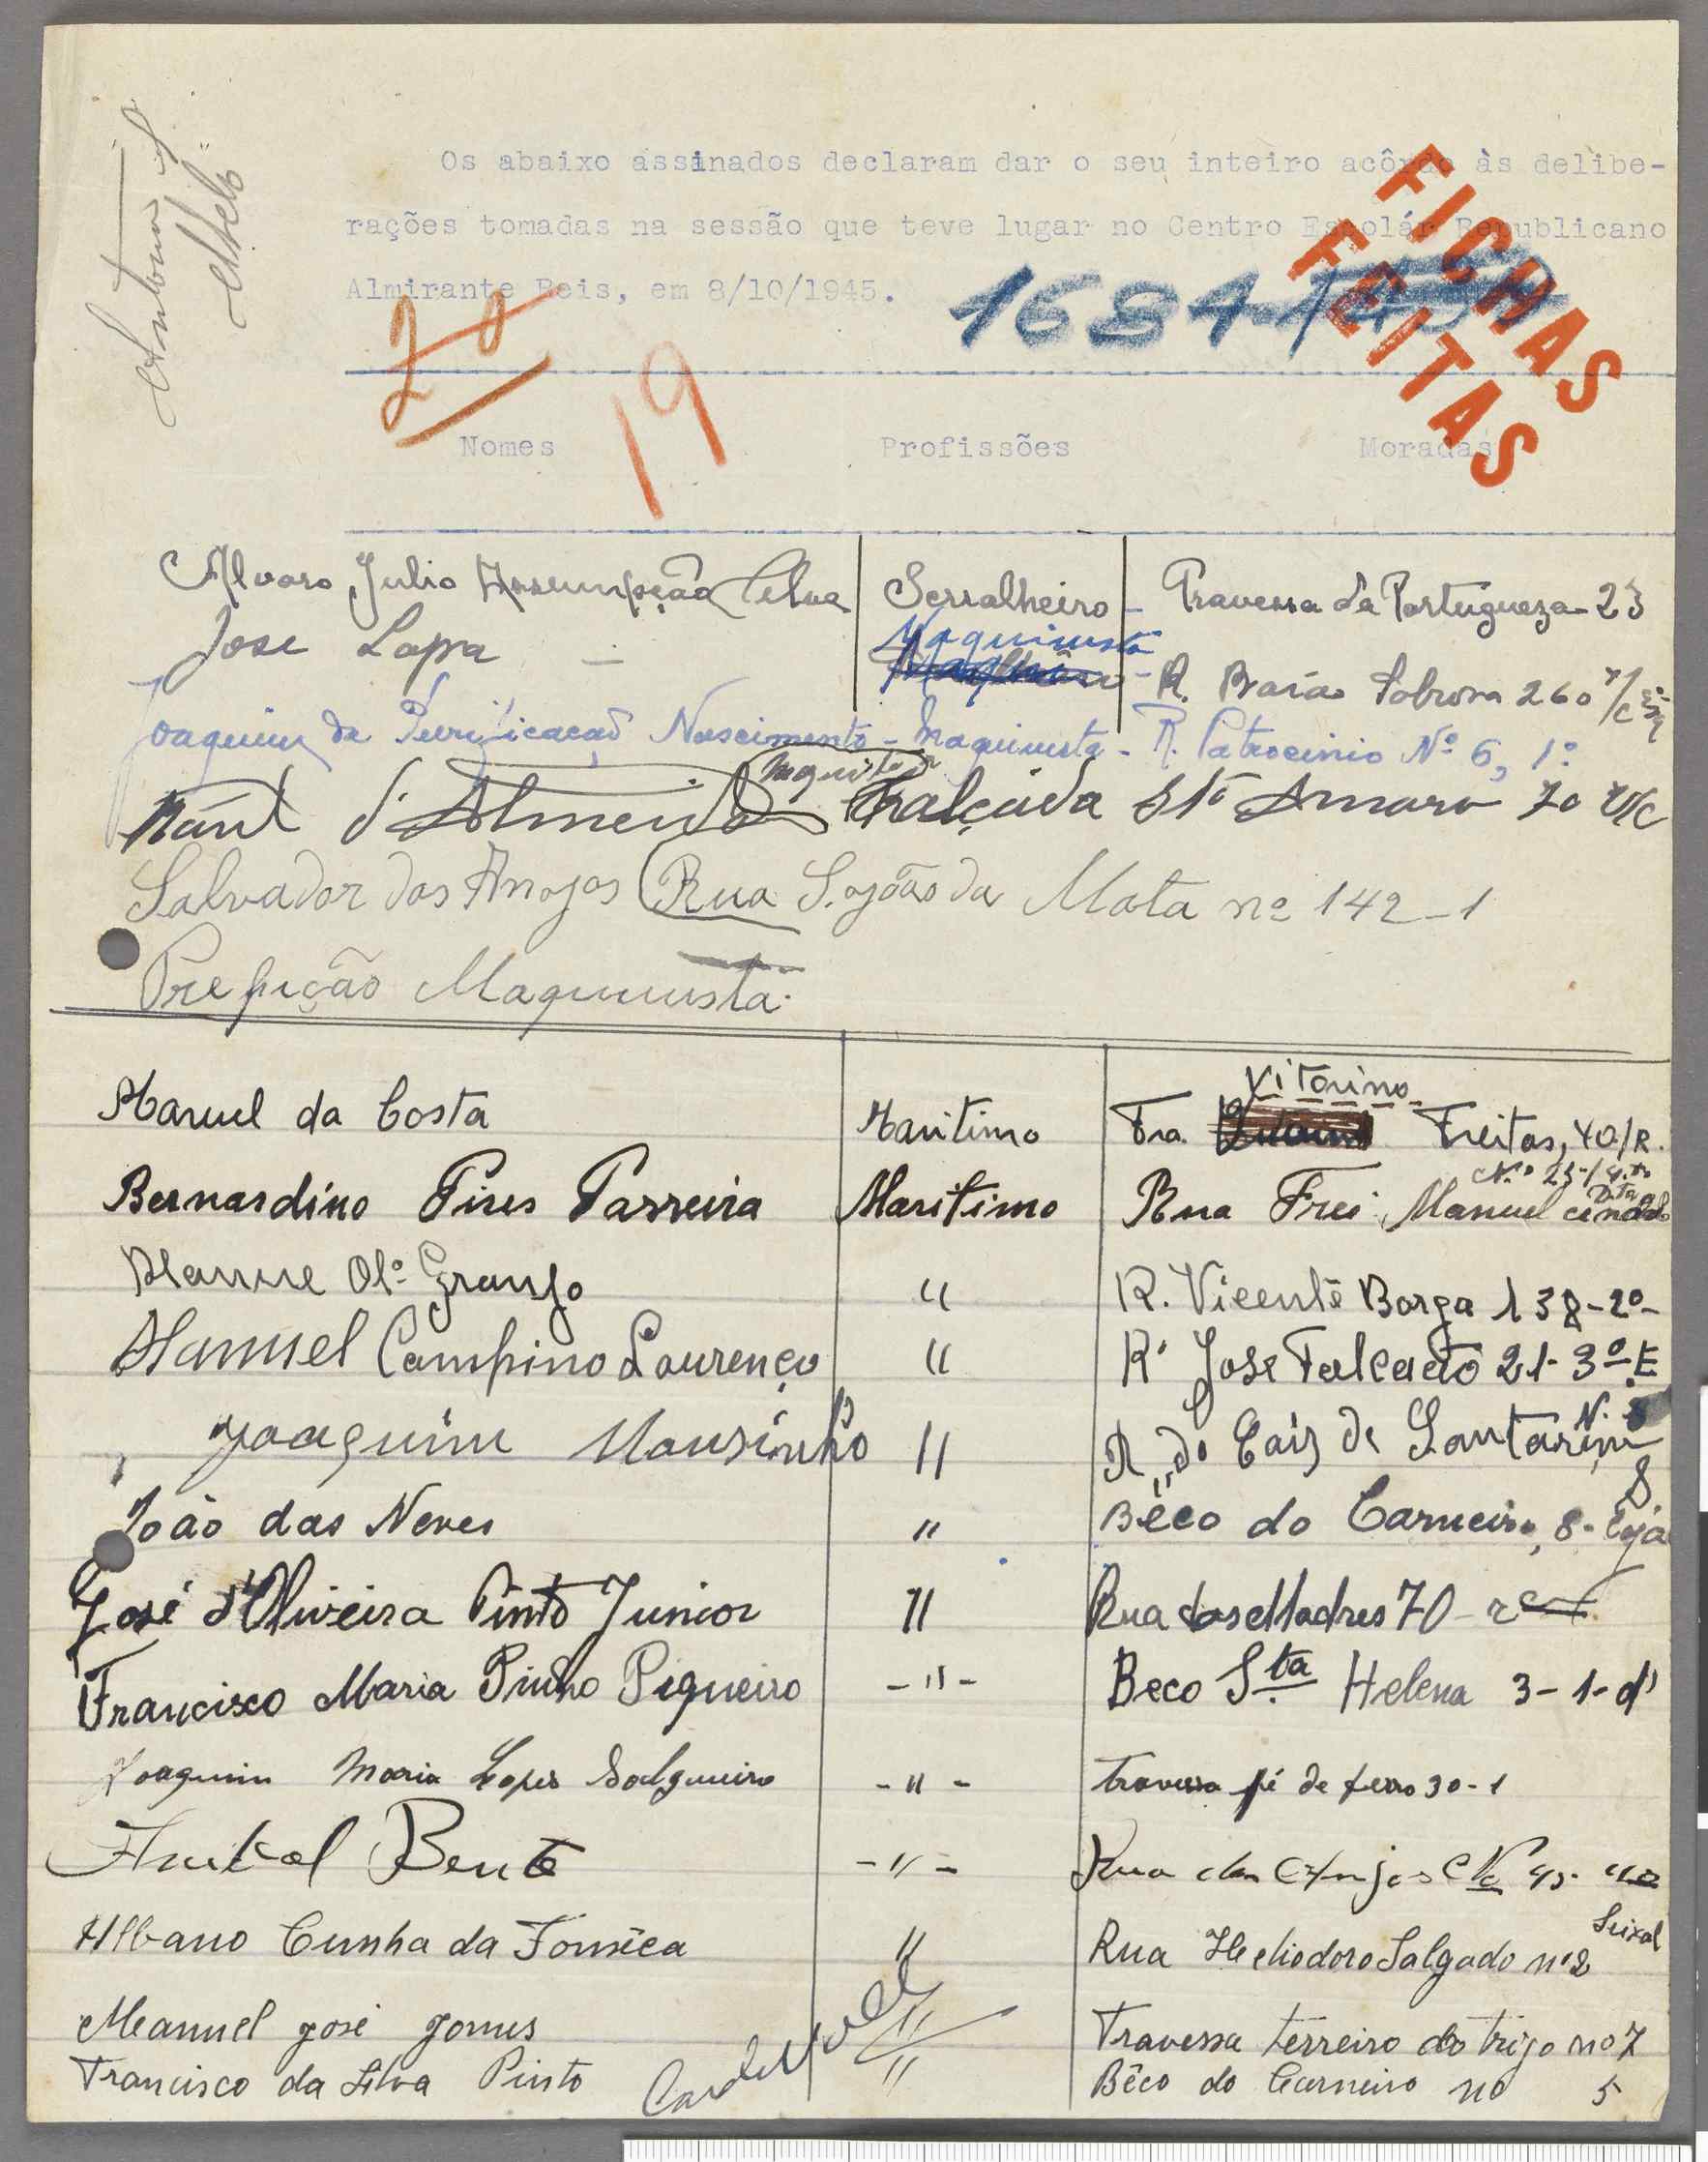 Os abaixo assinados declaram dar o seu inteiro acôrdo às delibe-
rações tomadas na sessão que teve lugar no Centro Escolár Republicano
Almirante Reis, em 8/10/1945.
FICHAS
FEITAS
1684
19
Nomes Profissões Moradas
Alvaro Julio Assumpção Silva Serralheiro - Travessa da Portugueza - 23
Jose Lapa - Maquinista - R. Barão Sabrosa 260 r/c
Joaquim da Purificação Nascimento - Maquinista - R. Patrocinio Nº 6, 1º
Raúl d'Almeida Calçada Stº Amaro 70 r/c
Salvador dos Anojos Rua S. João da Mata nº 142-1
Prefição Maquinista.
Manuel da Costa Maritimo Tra. Vitorino Freitas, 40/R.
Bernardino Pires Parreira Maritimo Rua Frei Manuel
Olª Granjo " R. Vicente Borga 138-2º-
Manuel Campino Lourenço " Rª Jose Falcão 21-3º-E
Joaquim Mousinho " R. do Cais de Santarem N. 8
João das Neves " Bêco do Carneiro, 8- Loja
José d'Oliveira Pinto Junior " Rua das Madres 70 -
Francisco Maria Pinho Pigueiro -"- Beco Sta Helena 3-1-dº
Joaquim Maria Lopes Salgueiro -"- travessa pé de ferro 30-1
Anibal Bento -"- Rua dos Anjos
Albano Cunha da Fonsêca " Rua Heliodoro Salgado nº 2 Seixal
Meanuel josé gomes " Travessa terreiro do trigo no 7
Francisco da Silva Pinto " Bêco do Carneiro no 5